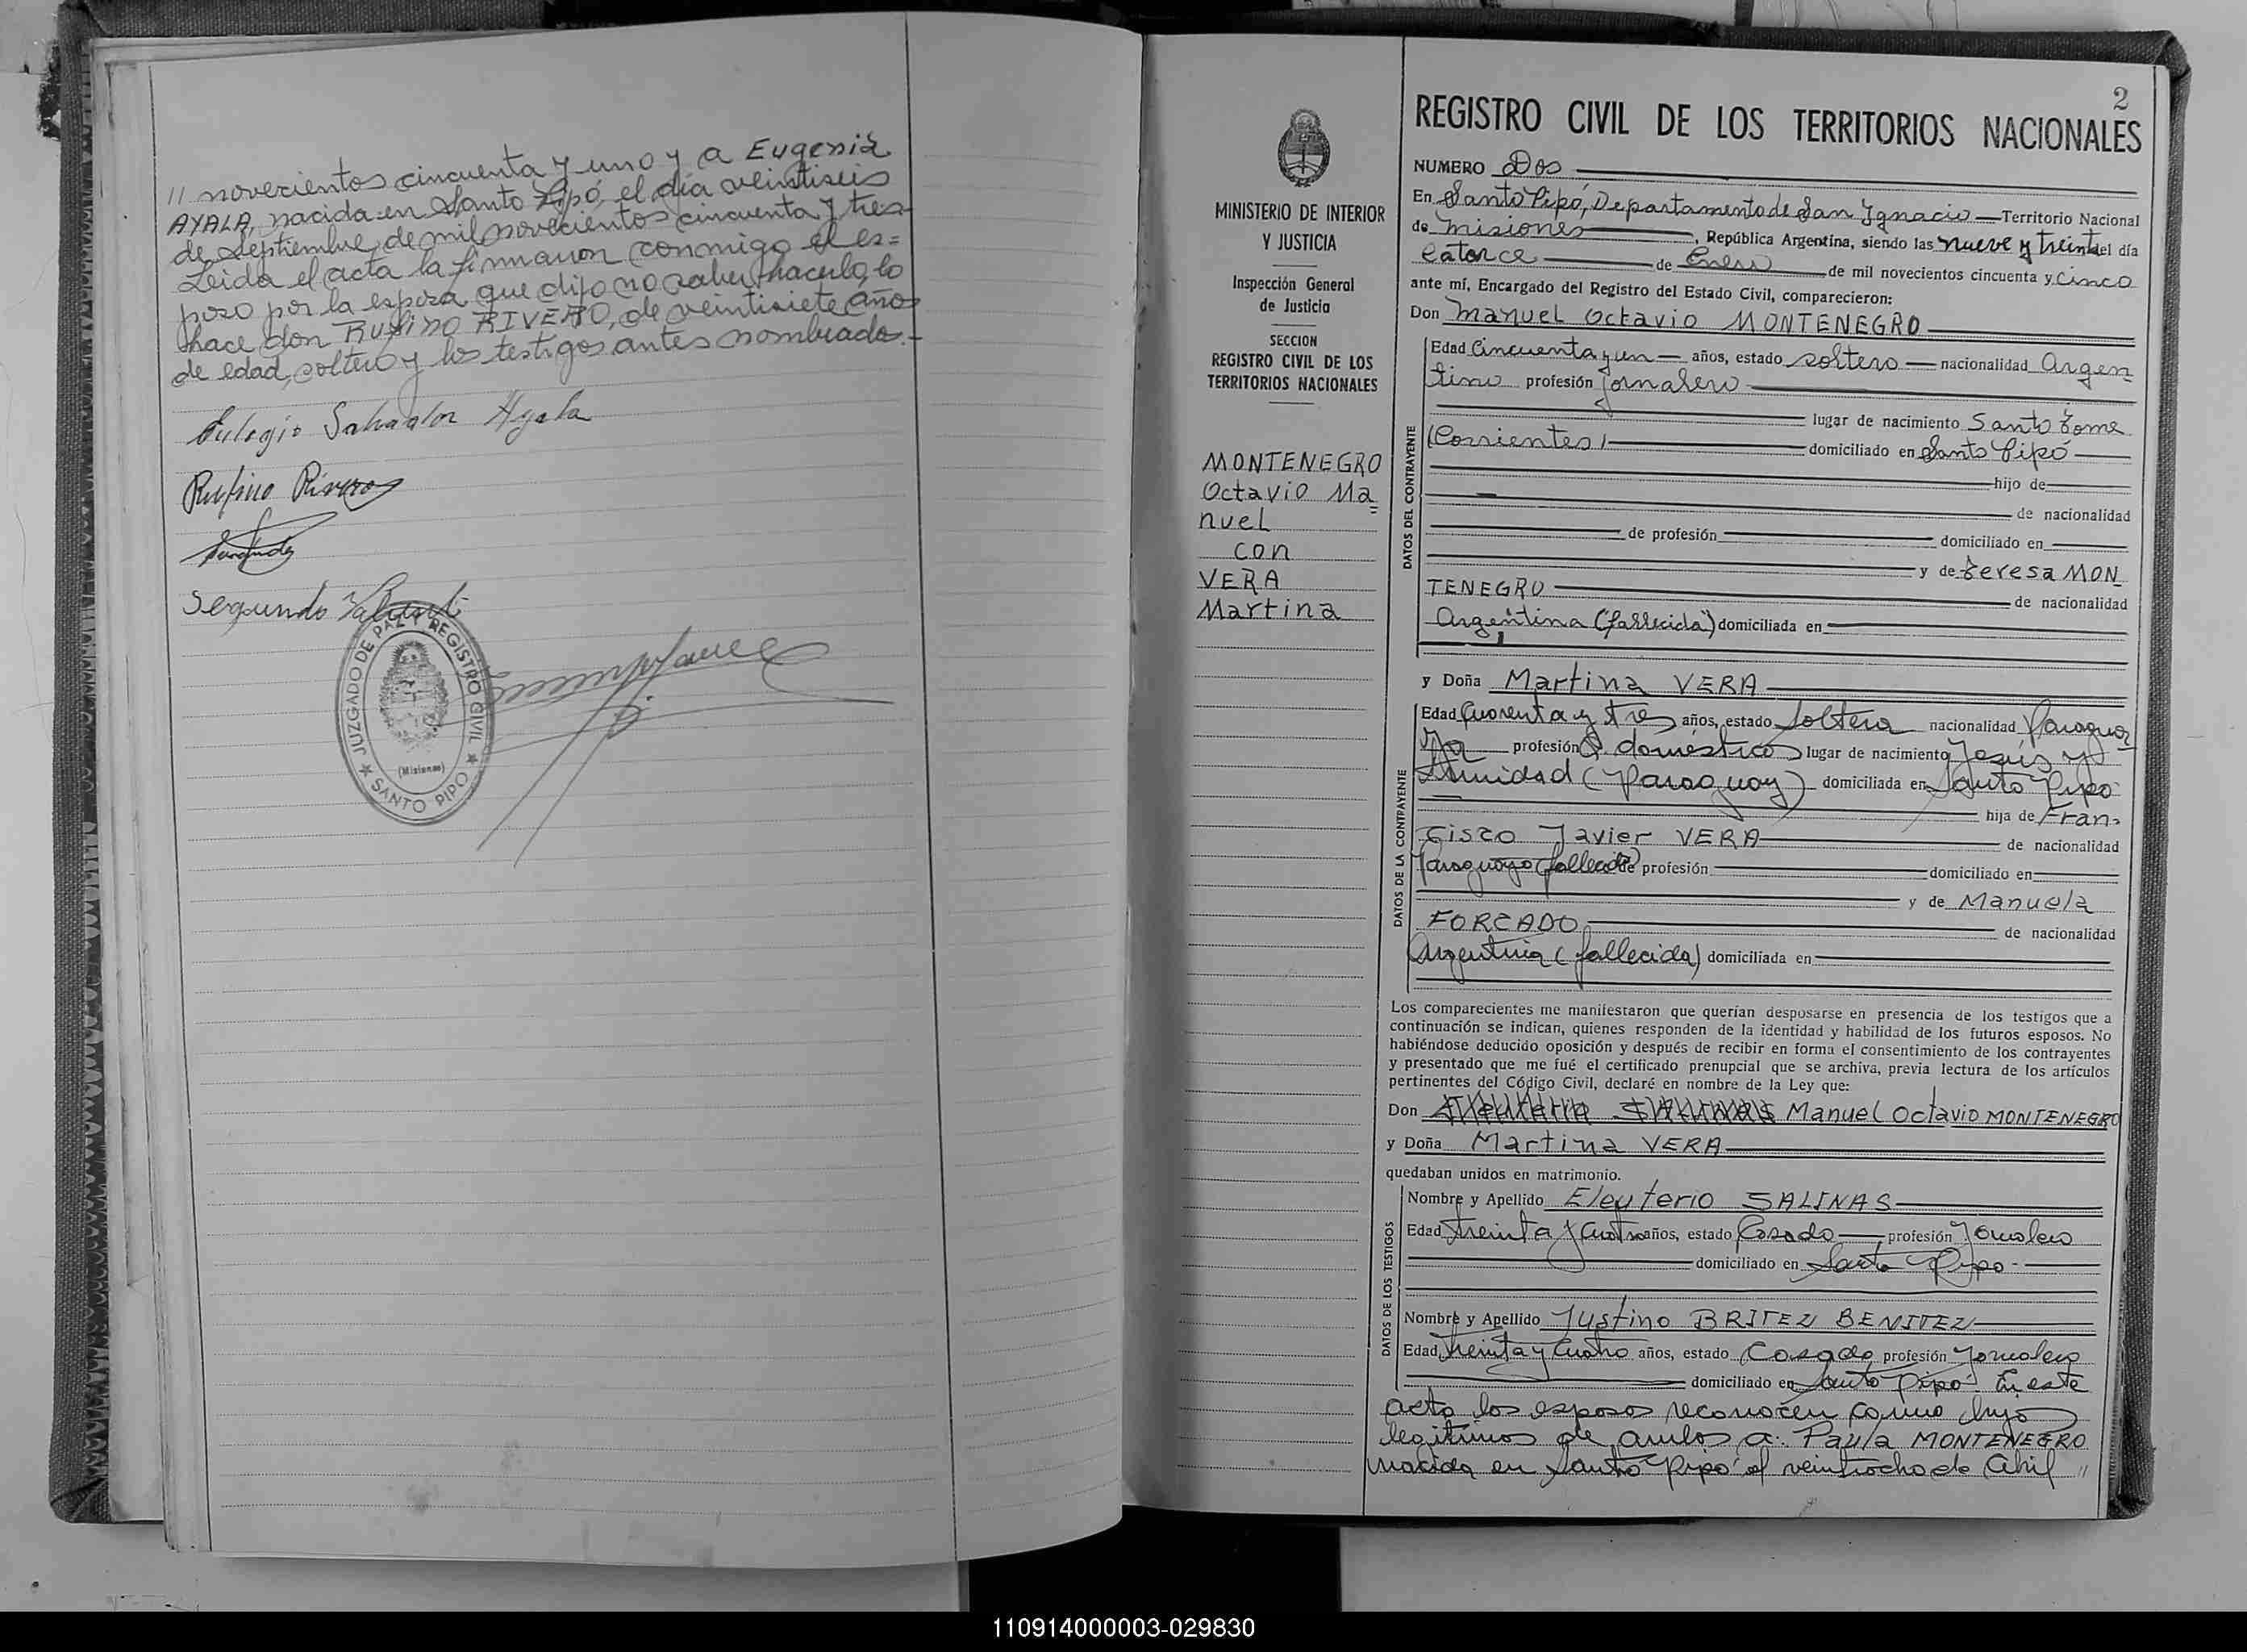 // novecientos cincuenta y uno y a Eugenia
AYALA, nacida en Santo Pipó, el día veintiseis
de Septiembre de mil novecientos cincuenta y tres.
Leida el acta la firmaron conmigo el es=
poso por la esposa que dijo no saber hacerlo, lo
hace don Rufino RIVERO, de veintisiete años
de edad, soltero y los testigos antes nombrados.-
Eulogio Salvador Ayala
Rufino Rivero
Segundo
JUZGADO DE PAZ Y REGISTRO CIVIL
(Misiones)
SANTO PIPO
MINISTERIO DE INTERIOR
Y JUSTICIA
Inspección General
de Justicia
SECCION
REGISTRO CIVIL DE LOS
TERRITORIOS NACIONALES
MONTENEGRO
Octavio Ma=
nuel
con
VERA
Martina
2
REGISTRO CIVIL DE LOS TERRITORIOS NACIONALES
NUMERO Dos
En Santo Pipó, Departamento de San Ignacio Territorio Nacional
de Misiones, República Argentina, siendo las nueve y treinta del día
catorce de Enero de mil novecientos cincuenta y cinco
ante mí, Encargado del Registro del Estado Civil, comparecieron:
Don Manuel Octavio MONTENEGRO
DATOS DEL CONTRAYENTE
Edad Cincuenta y un años, estado soltero nacionalidad Argen
tino profesión jornalero
lugar de nacimiento Santo Tome
(Corrientes) domiciliado en Santo Pipó
hijo de
de nacionalidad
de profesión domiciliado en
y de Teresa MON
TENEGRO de nacionalidad
Argentina (fallecida) domiciliada en
y Doña Martina VERA
DATOS DE LA CONTRAYENTE
Edad Cuarenta y tres años, estado Soltera nacionalidad Paragua
ya profesión Q. domésticos lugar de nacimiento Jesús y
Trinidad (Paraguay) domiciliada en Santo Pipó
hija de Fran=
cisco Javier VERA de nacionalidad
Paraguayo (fallecido) de profesión domiciliado en
y de Manuela
FORCADO de nacionalidad
Argentina (fallecida) domiciliada en
Los comparecientes me manifestaron que querían desposarse en presencia de los testigos que a
continuación se indican, quienes responden de la identidad y habilidad de los futuros esposos. No
habiéndose deducido oposición y después de recibir en forma el consentimiento de los contrayentes
y presentado que me fué el certificado prenupcial que se archiva, previa lectura de los artículos
pertinentes del Código Civil, declaré en nombre de la Ley que:
Don Manuel Octavio MONTENEGRO
y Doña Martina VERA
quedaban unidos en matrimonio.
DATOS DE LOS TESTIGOS
Nombre y Apellido Eleuterio SALINAS
Edad treinta y cuatro años, estado Casado profesión Jornalero
domiciliado en Santo Pipo
Nombre y Apellido Justino BRITEZ BENITEZ
Edad treinta y cuatro años, estado Casado profesión Jornalero
domiciliado en Santo Pipó. En este
acto los esposos reconocen como hijos
legitimos de ambos a: Paula MONTENEGRO
nacida en Santo Pipó el veintiocho de Abril //
110914000003-029830